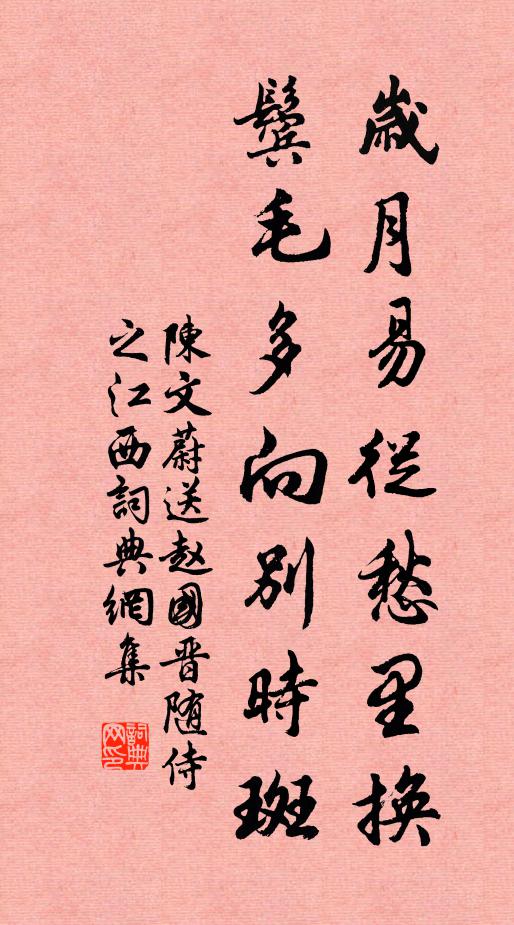 歲月易從愁里換
鬢毛多向別時斑
陳文蔚送赵國晋随侍
之江西詞典網集
詞典
网印